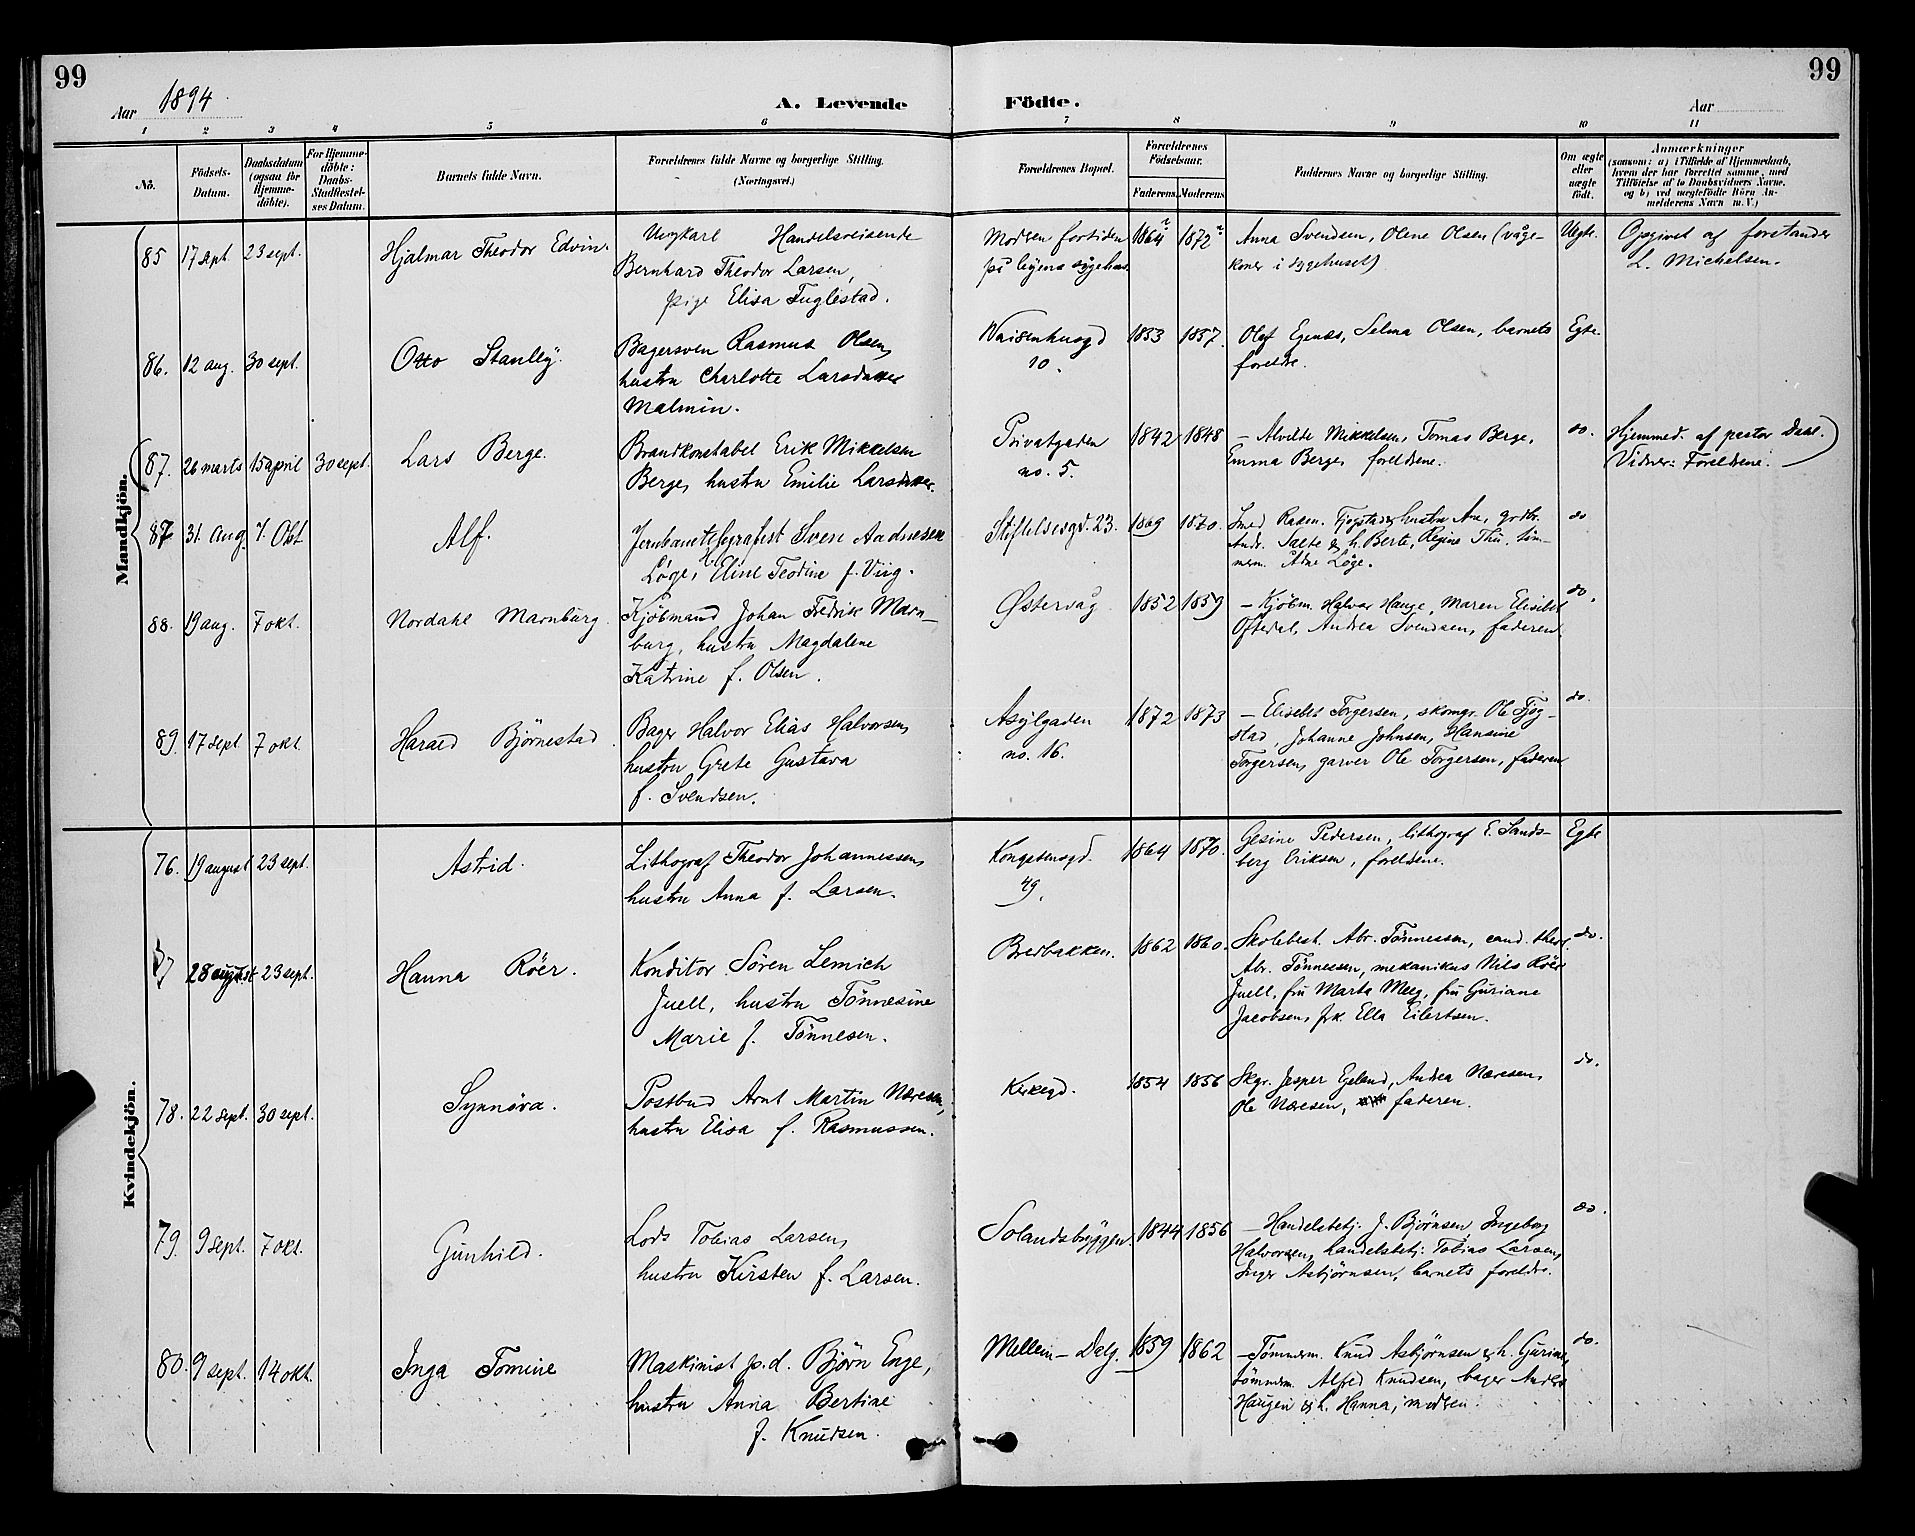 99
99
Aar 1894
A. Levende
Födte.
Aar
1 2 3 4 5 6 7 8 9 10 11
No.
Födsels-
Datum.
Daabsdatum
(ogsaa for
Hjemme-
döbte).
For Hjemme-
döbte:
Daabs-
Stadfæstel-
ses Datum.
Barnets fulde Navn.
Forældrenes fulde Navne og borgerlige Stilling.
(Næringsvei.)
Forældrenes Bopæl.
Forældrenes
Födselsaar.
Faderens Moderens
Faddernes Navne og borgerlige Stilling.
Om ægte
eller
uægte
födt.
Anmærkninger
(saasom: a) i Tilfælde af Hjemmedaab,
hvem der har forrettet samme, med
Tilföielse af to Daabsvidners Navne,
og b) ved uægtefödte Börn An-
melderens Navn m. V.)
Mandkjön.
85 17 sept 23 sept.
Hjalmar Theodor Edvin.
Ungkarl Handelsreisende
Bernhard Theodor Larsen,
pige Elisa Fuglestad.
Modren fortiden
på byens sygehus.
1864 1872
Anna Svendsen, Olene Olsen (våge-
koner i sygehuset)
Uegte.
Opgivet af forstander
L. Michelsen.
86. 12 aug. 30 sept.
Otto Stanley.
Bagersven Rasmus Olsen,
hustru Charlotte Larsdatter
Malmin.
Waisenhusgd
10.
1853 1857.
Olaf Egenæs, Selma Olsen, barnets
foreldre.
Egte.
87. 26 marts 15 april 30 sept.
Lars Berge.
Brandkonstabel Erik Mikkelsen
Berge, hustru Emilie Larsdatter.
Privatgaden
no. 5.
1842 1848
— Alvilde Mikkelsen, Tomas Berge,
Emma Berge, foreldrene.
do.
Hjemmed. af pastor Dahl.
Vidner: Foreldrene.
87 31. Aug. 7. Okt
Alf.
Jernbanetelegrafist Sven Aadnesen
Løge, H. Eline Teodine f. Viig.
Stiftelsesgd. 23.
1869 1870.
Smed Rasm. Tjøgstad & hustru Ane, grdbr.
Andr. Salte & h. Berte, Regine Thu, töm-
merm. Adne Løge.
do
88. 19 aug. 7 okt.
Nordahl Marnburg.
Kjöbmand Johan Fredrik Marn-
burg, hustru Magdalene
Katrine f. Olsen.
Østervåg
1852 1859
— Kjöbm. Halvor Hauge, Maren Elisebet
Oftedal, Andrea Svendsen, faderen
do.
89. 17 sept 7 okt.
Harald Björnestad.
Bager Halvor Elias Halvorsen,
hustru Grete Gustava
f. Svendsen.
Asylgaden
no. 16.
1872 1873
— Elisebet Torgersen, skomgr. Ole Tjøg-
stad, Johanne Johnsen, Hansine
Torgersen, garver Ole Torgersen, faderen
do.
Kvindekjön.
76. 19 august 23 sept.
Astrid.
Lithograf Theodor Johannessen,
hustru Anna f. Larsen.
Kongstensgd.
49.
1864 1870.
Gesine Pedersen, lithograf E. Sands-
berg Eriksen, foreldrene.
Egte
77 28 august 23 sept.
Hanna Röer.
Konditor Sören Lemich
Juell, hustru Tönnesine
Marie f. Tönnesen.
Bredbakken.
1862 1860.
Skolebest. Abr. Tönnessen, cand. theol.
Abr. Tönnessen, mekanikus Nils Röer
Juell, fru Marta Meeg, fru Guriane
Jacobsen, frk. Ella Eilertsen.
do.
78. 22 sept. 30 sept.
Synnöva.
Postbud Arnt Martin Næresen,
hustru Elisa f. Rasmussen.
Kirkegd.
1854 1856
Skgr. Jesper Egeland, Andrea Næresen,
Ole Næresen, faderen.
do.
79. 9 sept. 7 okt.
Gunhild.
Lods Tobias Larsen,
hustru Kirsten f. Larsen.
Solandsbryggen.
1844 1856
— Handelsbetj. J. Björnsen, Ingeborg
Halvorsen, handelsbetj. Tobias Larsen,
Inger Asbjörnsen, barnets foreldre.
do.
80. 9 sept. 14 okt.
Inga Tomine
Maskinist p.d. Björn Enge,
hustru Anna Bertine
f. Knudsen.
Mellem-Dalg.
1859 1862
— Tömmerm. Knud Asbjörnsen & h. Gurine,
tömmerm. Alfred Knudsen, bager Anders
Haugen & h. Hanna, modren.
do.